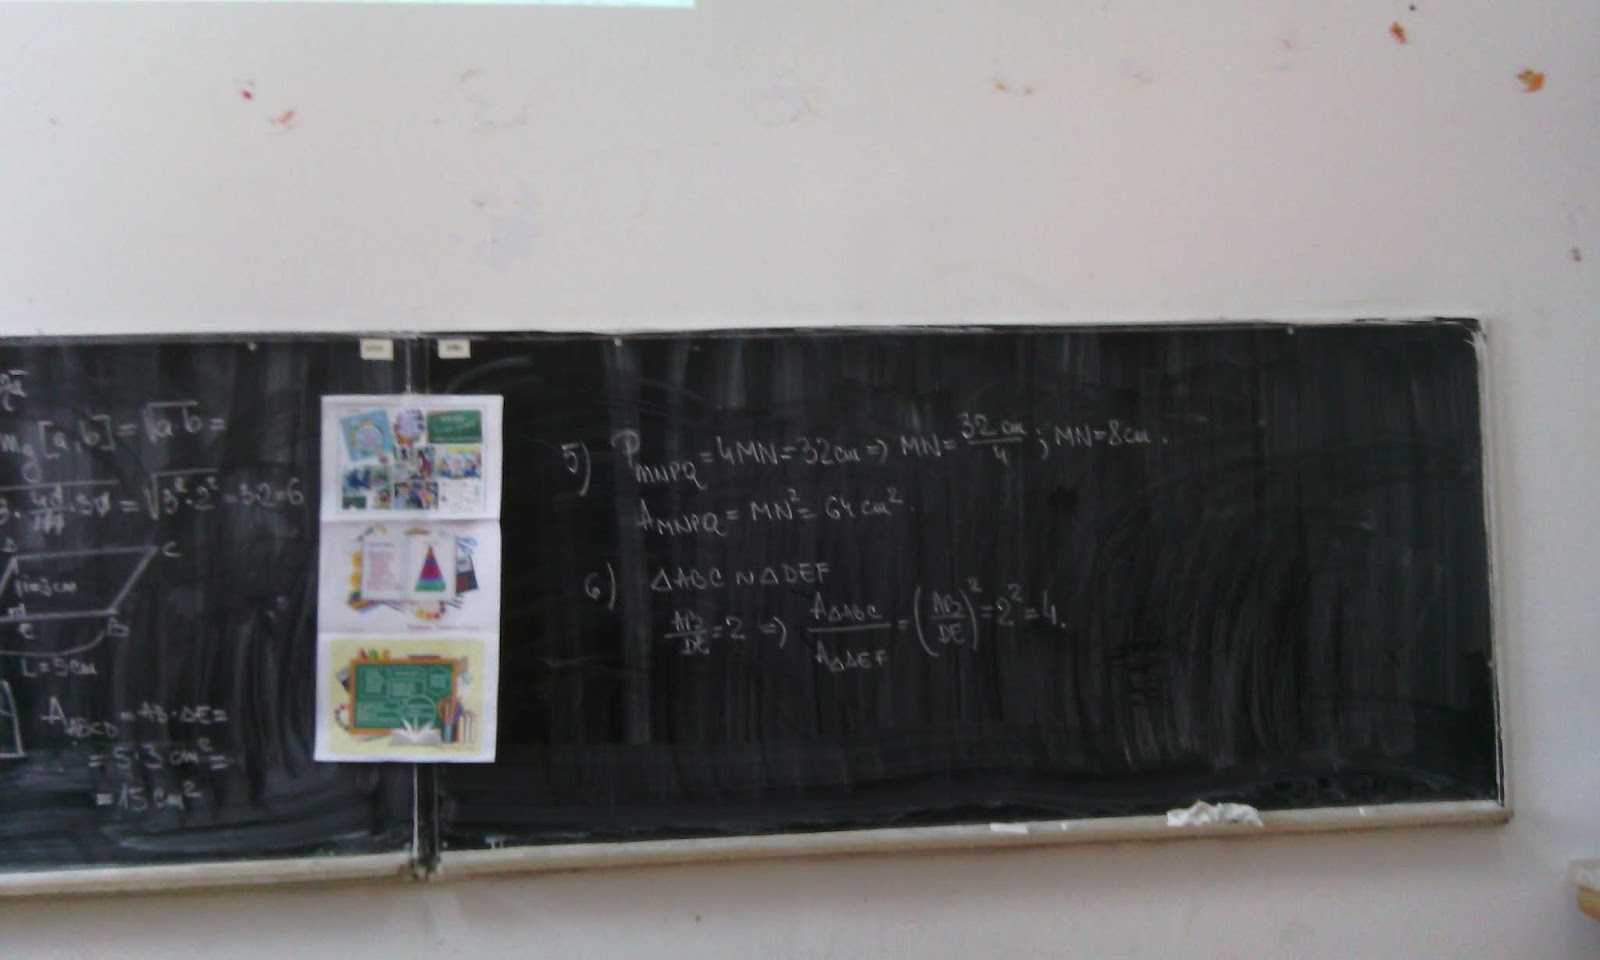 mg[a,b]=√a·b=
=√3²·2²=3·2=6
D
C
=3cm
E
B
L=5cm
A ABCD = AB·DE=
=5·3cm²=
=15cm²
5) P MNPQ = 4MN=32cm => MN= 32cm/4 ; MN=8cm.
A MNPQ = MN²= 64cm².
6) △ABC ~ △DEF
AB/DE =2 => A△ABC/A△DEF = (AB/DE)²=2²=4.